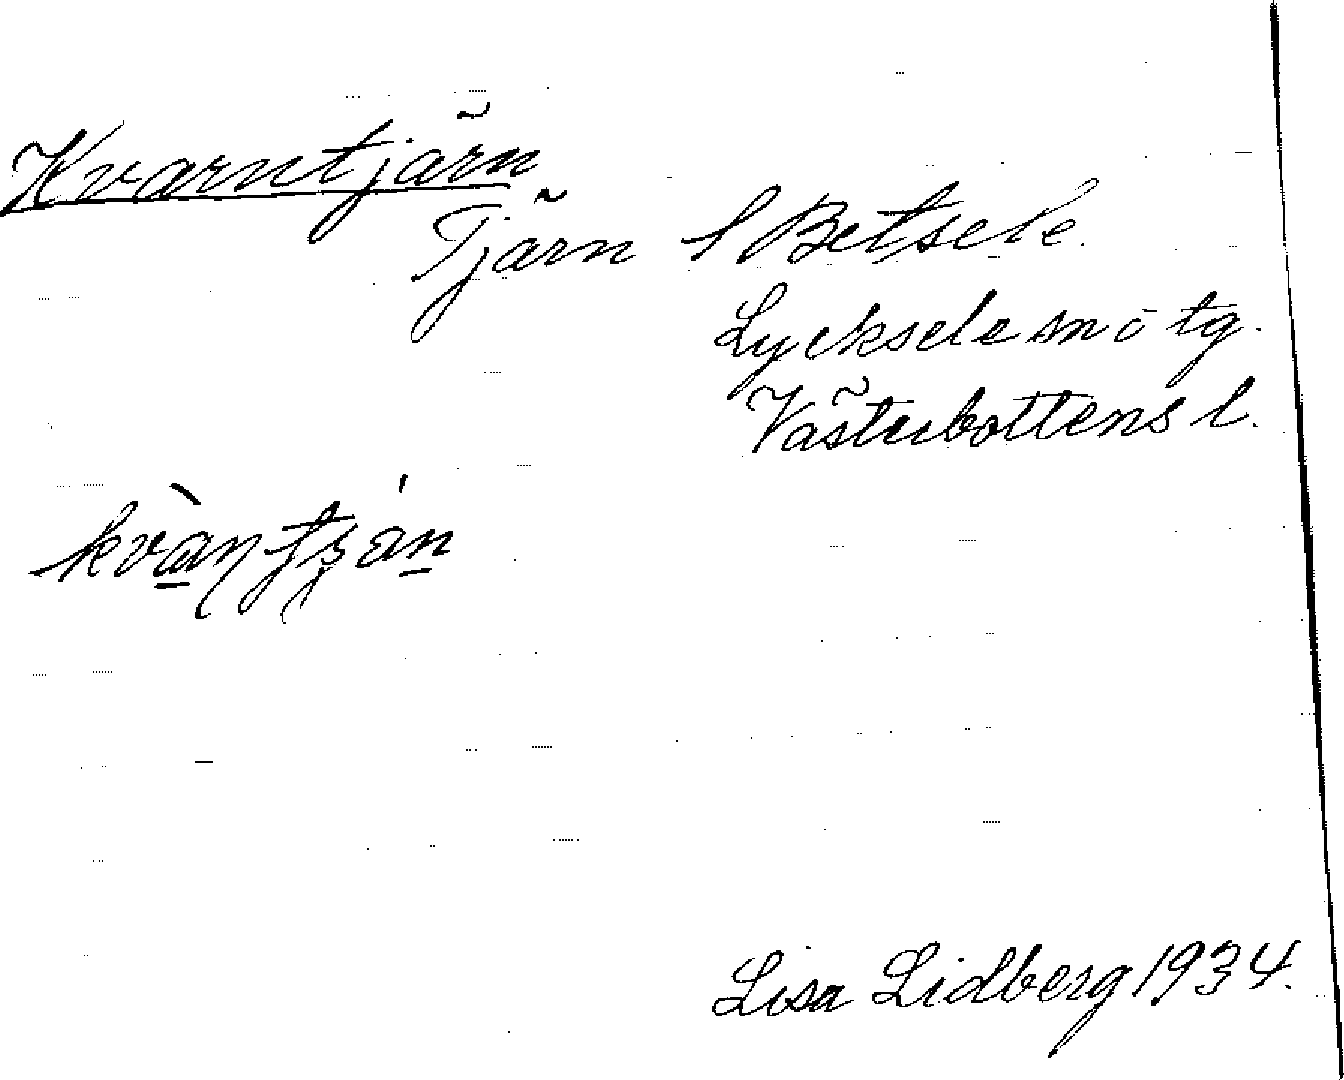 Kvarntjärn
Tjärn i Betsele.
Lycksele sn o tg.
Västerbottens l.
Lisa Lidberg 1934.